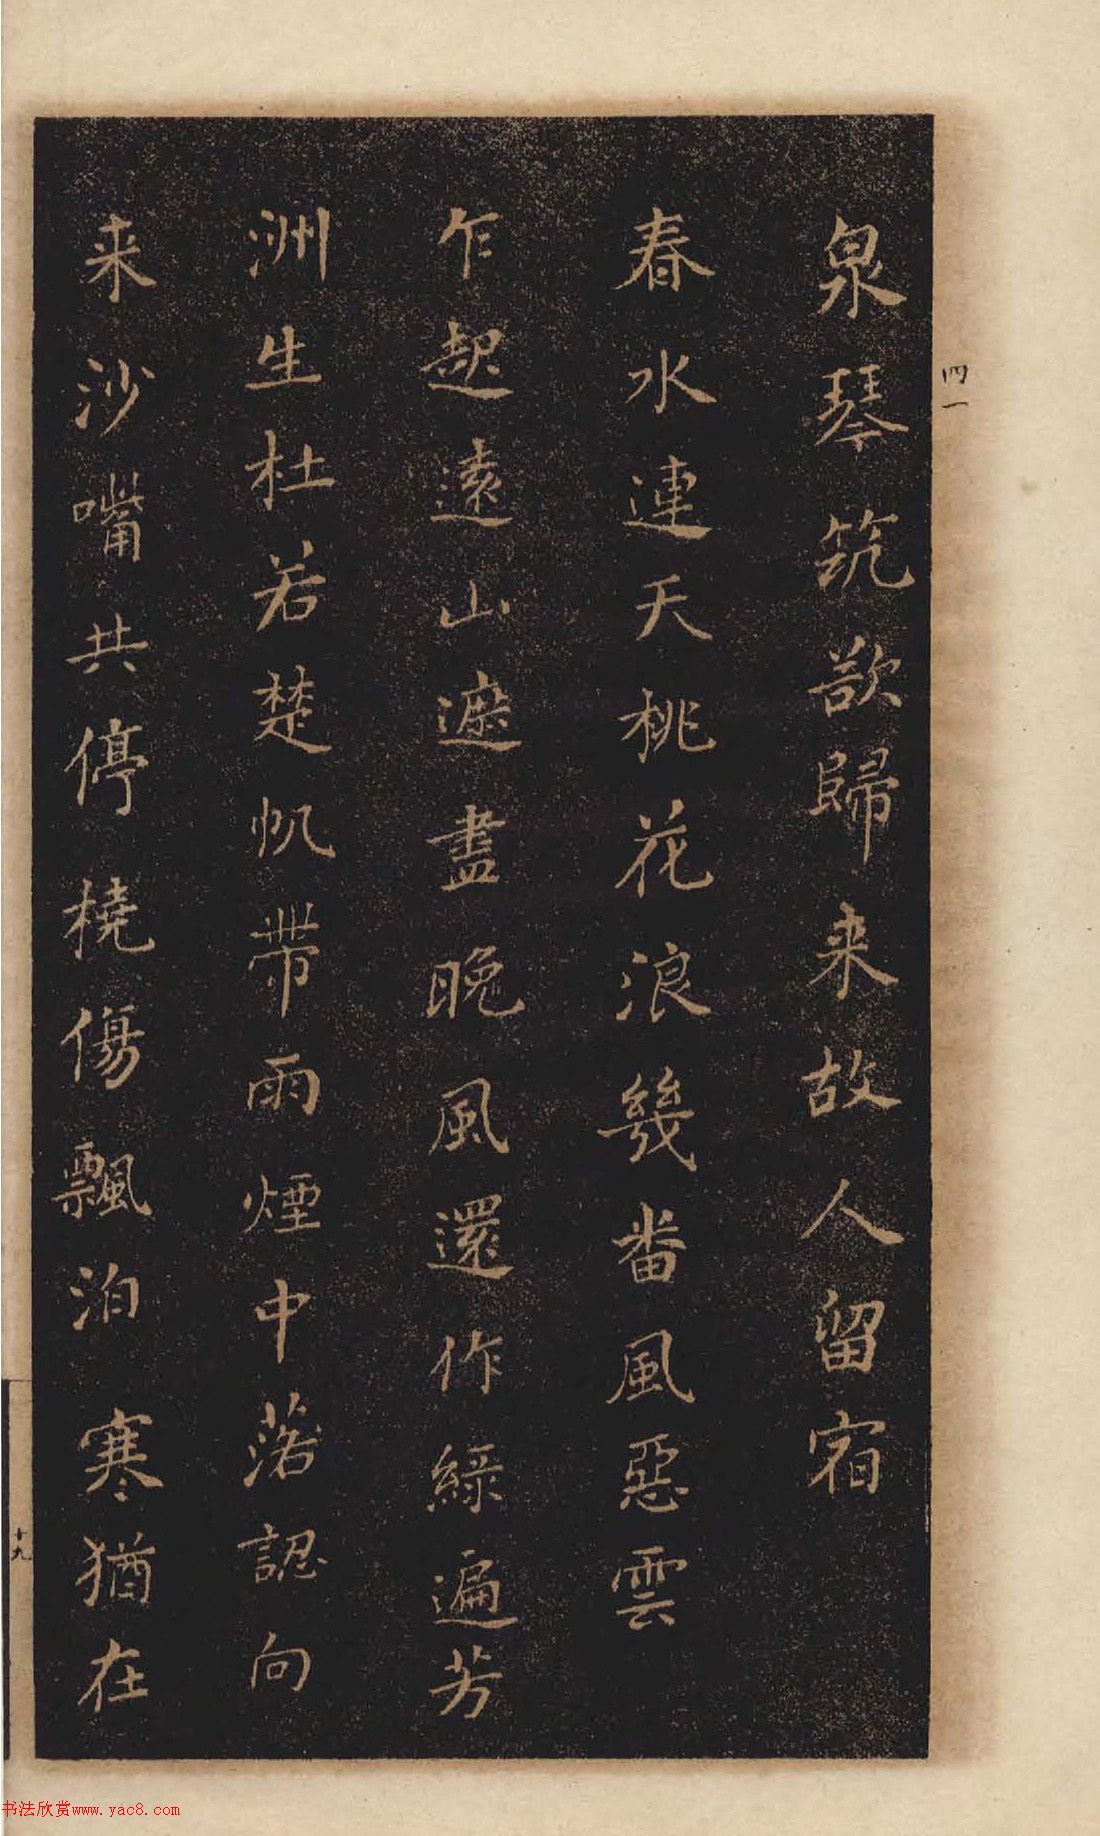 泉琴筑欲歸来故人留宿
春水連天桃花浪幾番風惡雲
乍起遠山遮盡晚風還作綠遍芳
洲生杜若楚帆帶雨煙中落認向
来沙嘴共停橈傷飄泊寒猶在
四一
十九
书法欣赏www.yac8.com